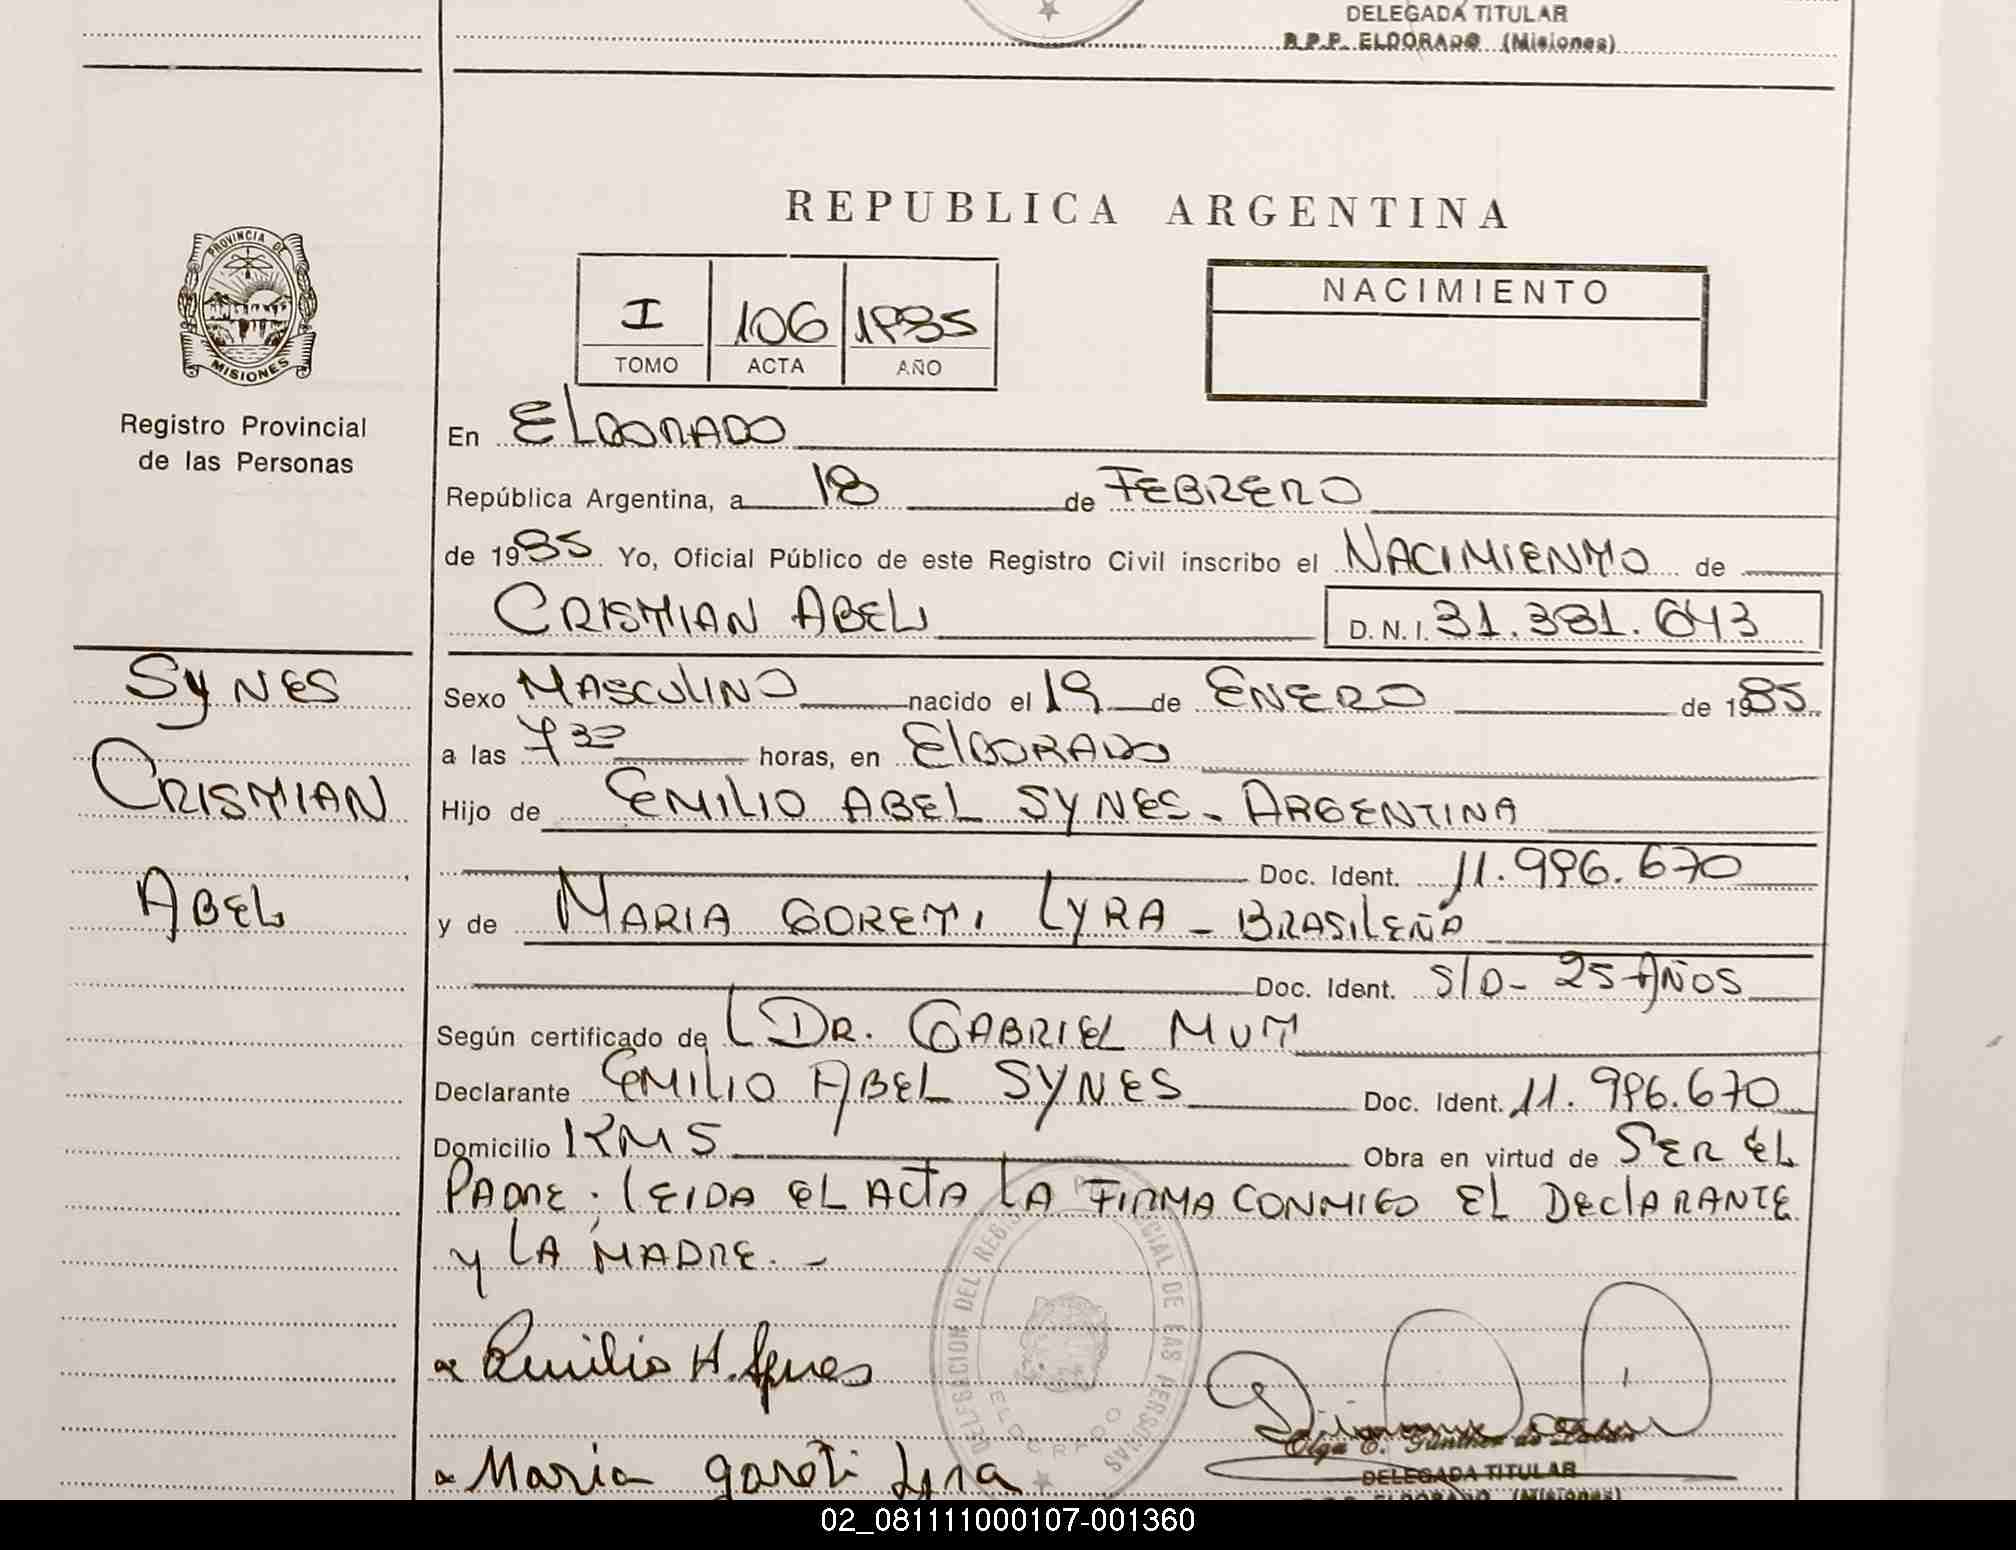 DELEGADA TITULAR
R.P.P. ELDORADO (Misiones)
REPUBLICA ARGENTINA
PROVINCIA DE
MISIONES
Registro Provincial
de las Personas
I 106 1985
TOMO ACTA AÑO
NACIMIENTO
En ELDORADO
República Argentina, a 18 de FEBRERO
de 1985 Yo, Oficial Público de este Registro Civil inscribo el NACIMIENTO de
CRISTIAN ABEL D.N.I. 31.381.643
SYNES
CRISTIAN
ABEL
Sexo MASCULINO nacido el 19 de ENERO de 1985
a las 7 30 horas, en ELDORADO
Hijo de EMILIO ABEL SYNES - ARGENTINA
Doc. Ident. 11.996.670
y de MARIA GORETI LYRA - BRASILEÑA
Doc. Ident. S/D - 25 AÑOS
Según certificado de DR. GABRIEL MUT
Declarante EMILIO ABEL SYNES Doc. Ident. 11.996.670
Domicilio KM 5 Obra en virtud de SER EL
PADRE. LEIDA EL ACTA LA FIRMA CONMIGO EL DECLARANTE
Y LA MADRE. -
DELEGACION DEL REGISTRO PROVINCIAL DE LAS PERSONAS
ELDORADO
Emilio A. Synes
Maria goreti Lyra
Olga E. Günther de
DELEGADA TITULAR
R.P.P. ELDORADO (Misiones)
02_081111000107-001360